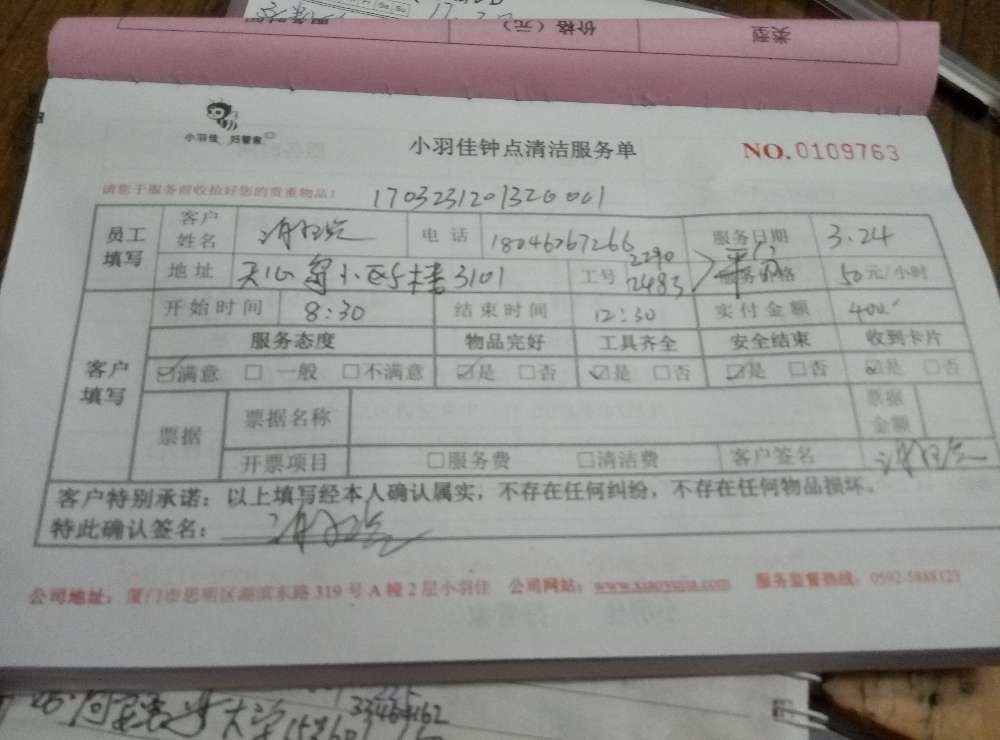 类型
价格（元）
小羽佳 好管家
小羽佳钟点清洁服务单
NO.0109763
请您于服务前收拾好您的贵重物品！
1703231201326001
员工填写
客户姓名
电话 18046267266
服务日期 3.24
地址 3101
工号 2290 2483
服务价格 50元/小时
客户填写
开始时间 8:30
结束时间 12:30
实付金额 400
服务态度 物品完好 工具齐全 安全结束 收到卡片
☑满意 □一般 □不满意 ☑是 □否 ☑是 □否 ☑是 □否 ☑是 □否
票据
票据名称
票据金额
开票项目 □服务费 □清洁费 客户签名
客户特别承诺：以上填写经本人确认属实，不存在任何纠纷，不存在任何物品损坏。
特此确认签名：
公司地址：厦门市思明区湖滨东路319号A幢2层小羽佳 公司网站：www.xiaoyujia.com 服务监督热线：0592-5888123